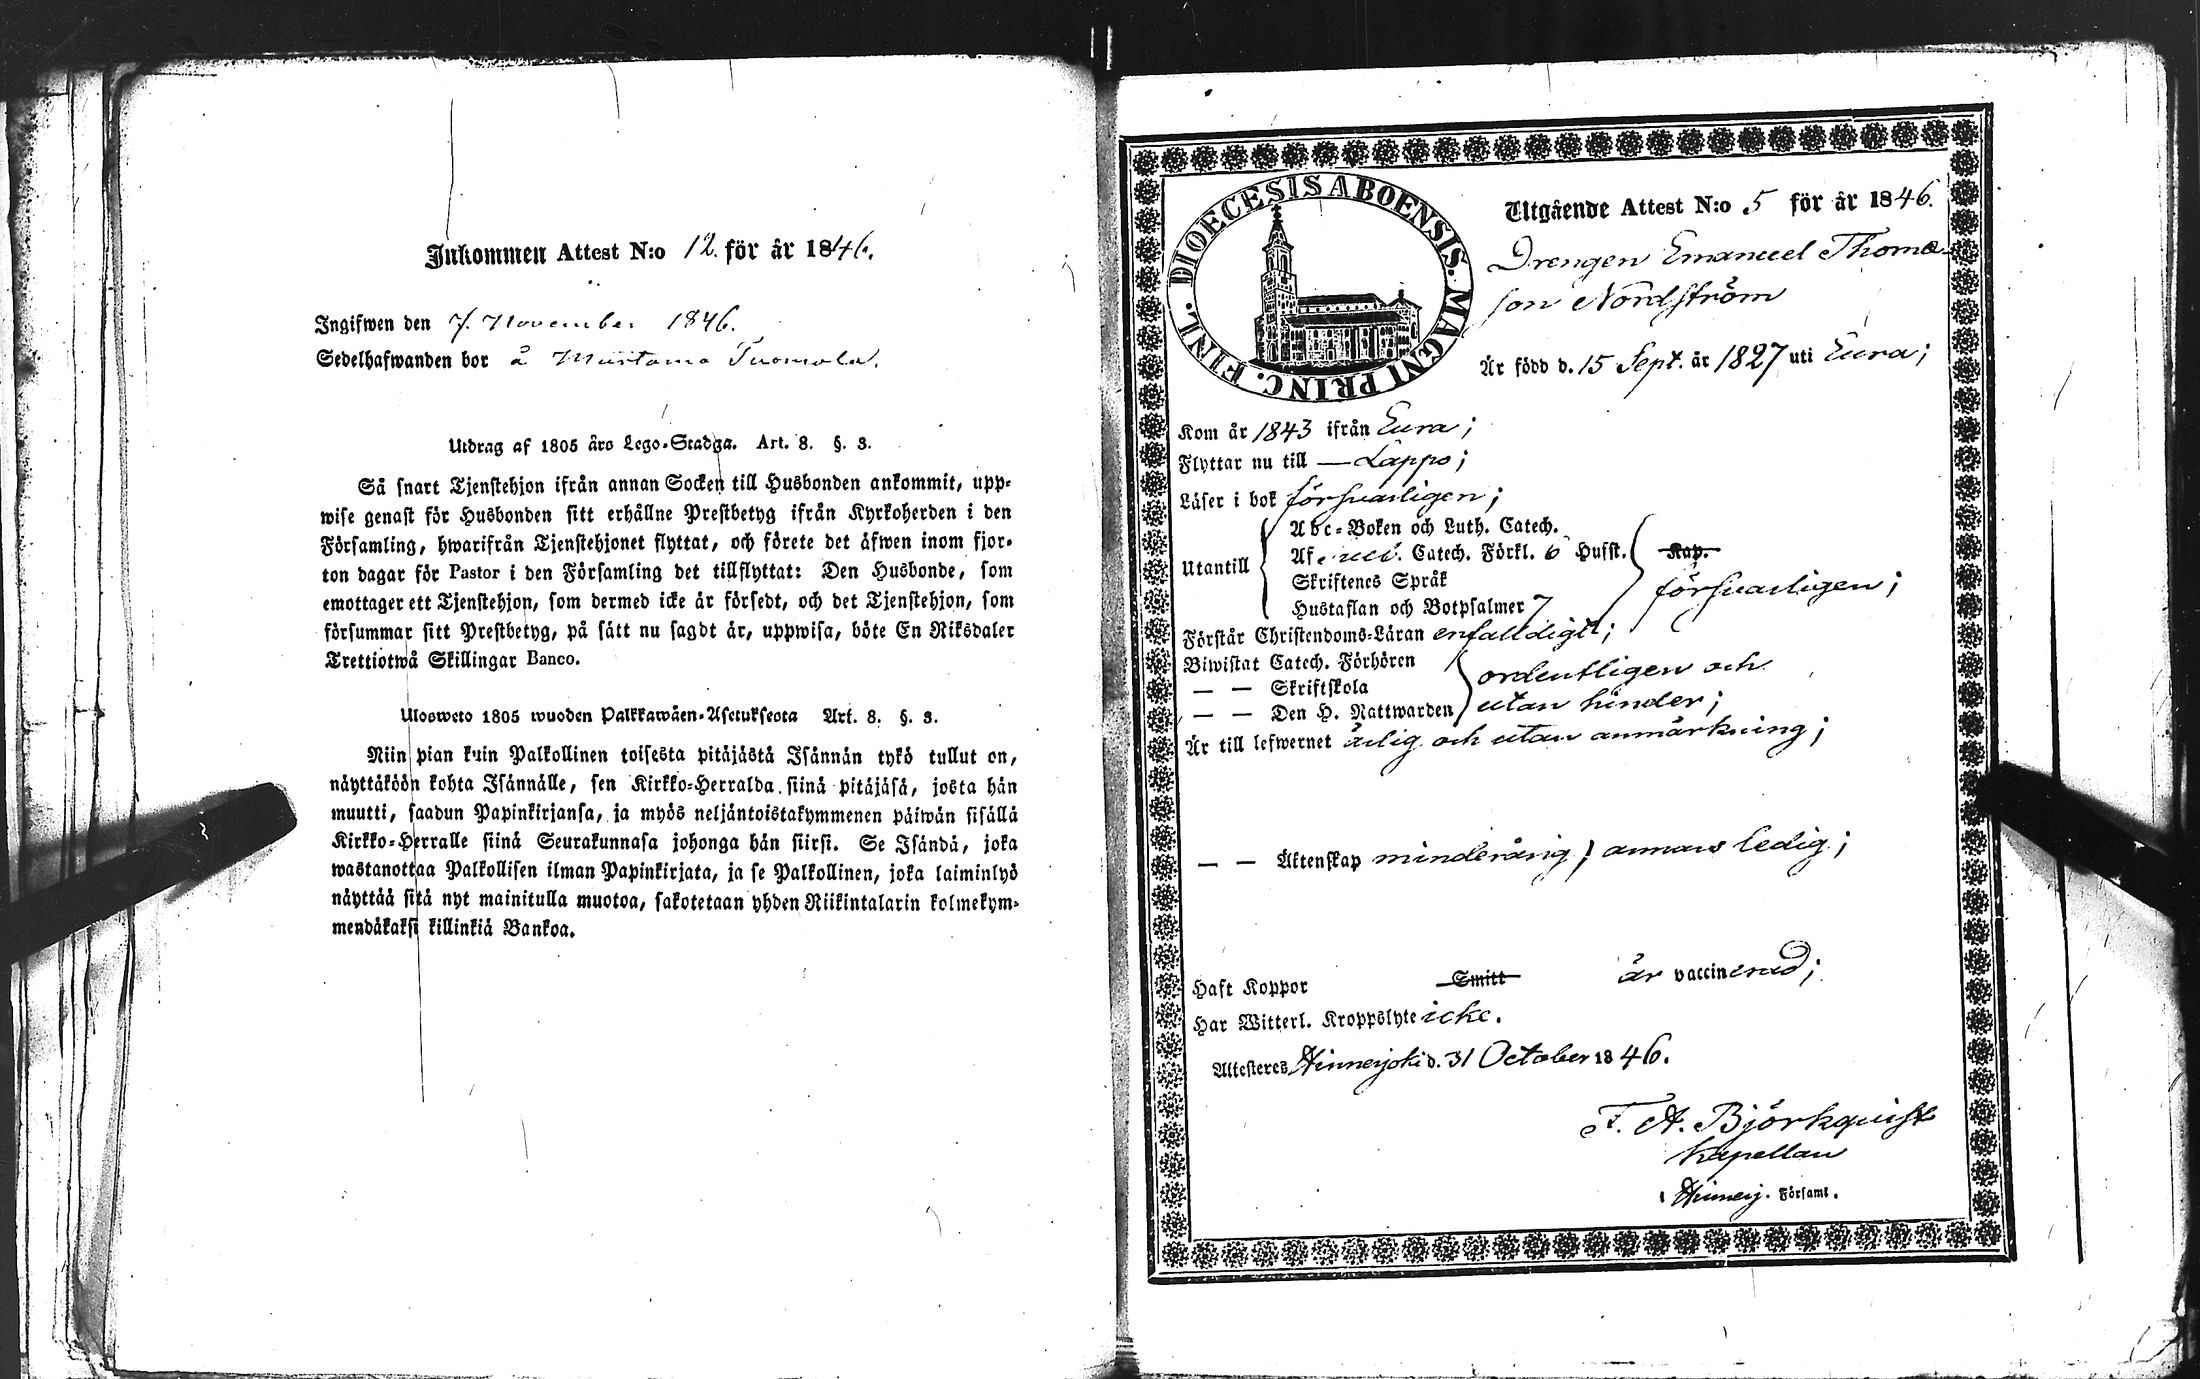 Inkommen Attest N:o 12. för år 1846.
Ingifwen den 7. November 1846.
Sedelhafwanden bor å Tuomola.
Utdrag af 1805 års Lego-Stadga. Art. 8. §. 3.
Så snart Tjenstehjon ifrån annan Socken till Husbonden ankommit, upp-
wise genast för Husbonden sitt erhållne Prestbetyg ifrån Kyrkoherden i den
Församling, hwarifrån Tjenstehjonet flyttat, och förete det äfwen inom fjor-
ton dagar för Pastor i den Församling det tillflyttat: Den Husbonde, som
emottager ett Tjenstehjon, som dermed icke är försedt, och det Tjenstehjon, som
försummar sitt Prestbetyg, på sätt nu sagdt är, uppwisa, böte En Riksdaler
Trettiotwå Skillingar Banco.
Ulosweto 1805 wuoden Palkkawäen-Asetuksesta Art. 8. §. 3.
Niin pian kuin Palkollinen toisesta pitäjästä Isännän tykö tullut on,
näyttäköön kohta Isännälle, sen Kirkko-Herralda siinä pitäjäsä, josta hän
muutti, saadun Papinkirjansa, ja myös neljäntoistakymmenen päiwän sisällä
Kirkko-Herralle siinä Seurakunnasa johonga hän siirsi. Se Isändä, joka
wastanottaa Palkollisen ilman Papinkirjata, ja se Palkollinen, joka laiminlyö
näyttää sitä nyt mainitulla muotoa, sakotetaan yhden Riikintalarin kolmekym-
mendäkaksi killinkiä Bankoa.
DIOECESIS ABOENSIS. MAGNI PRINC. FINL.
Utgående Attest N:o 5 för år 1846.
Drengen Emanuel Thoma-
son Nordström
Är född d. 15 Sept. år 1827 uti Eura;
Kom år 1843 ifrån Eura;
Flyttar nu till — Lappo;
Läser i bok försvarligen;
Utantill
Abc-Boken och Luth. Catech.
Af Catech. Förkl. 6 Hufst. Kap.
Skriftenes Språk
försvarligen;
Hustaflan och Botpsalmer 7
Förstår Christendoms-Läran enfalldigt;
Biwistat Catech. Förhören
— — Skriftskola
ordentligen och
— — Den H. Nattwarden utan hinder;
Är till lefwernet ärlig och utan anmärkning;
— — Äktenskap minderårig; annars ledig;
Haft Koppor Smitt är vaccinerad;
Har Witterl. Kroppslyte icke.
Attesteres Hinnerjoki d. 31 October 1846.
F. A. Björkquist
Kapellan
i Hinnerj. Församl.